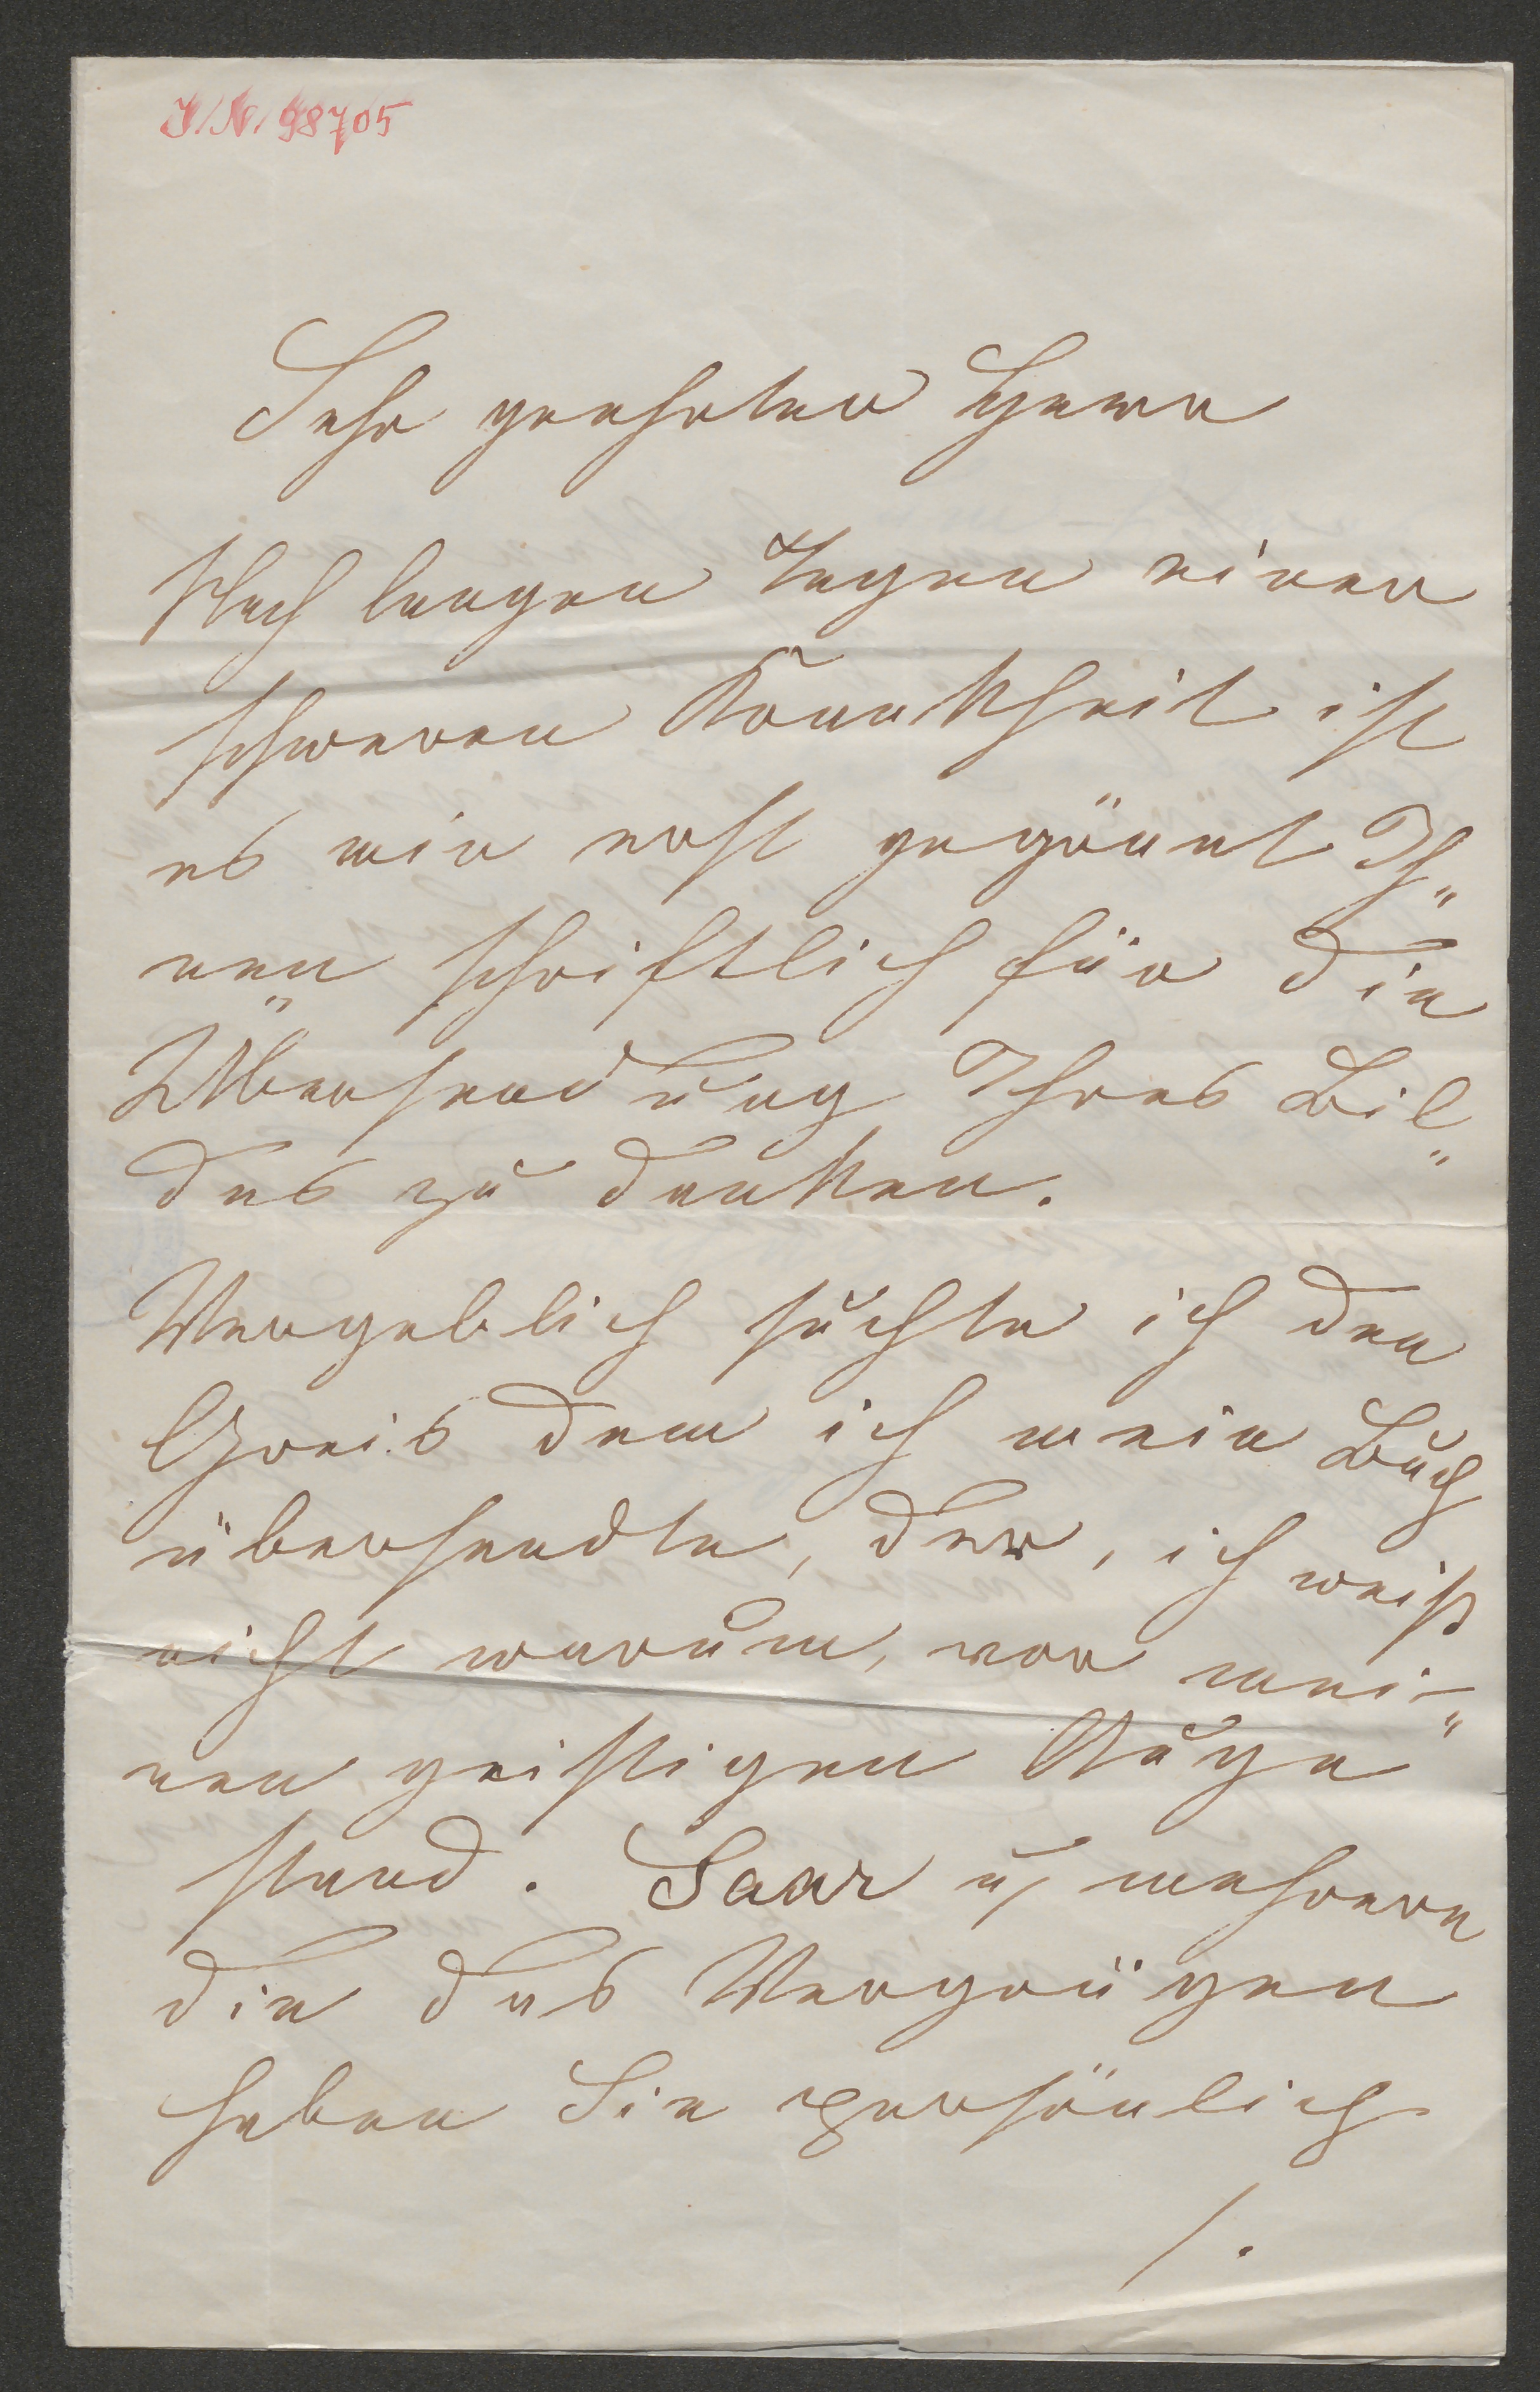 I/N/98705
Sehr geehrter Herr
Nach langen Tagen einer
schweren Krankheit ist
es mir erst gegönnt Ih„
nen schriftlich für die
Übersendung Ihres Bil„
des zu danken.
Vergeblich suchte ich den
Greis dem ich mein Buch
übersendte, der, ich weiß
nicht warum, vor mei„
nen geistigen Auge
stand. Saar u, mehrere
die das Vergnügen
haben Sie persönlich
/.